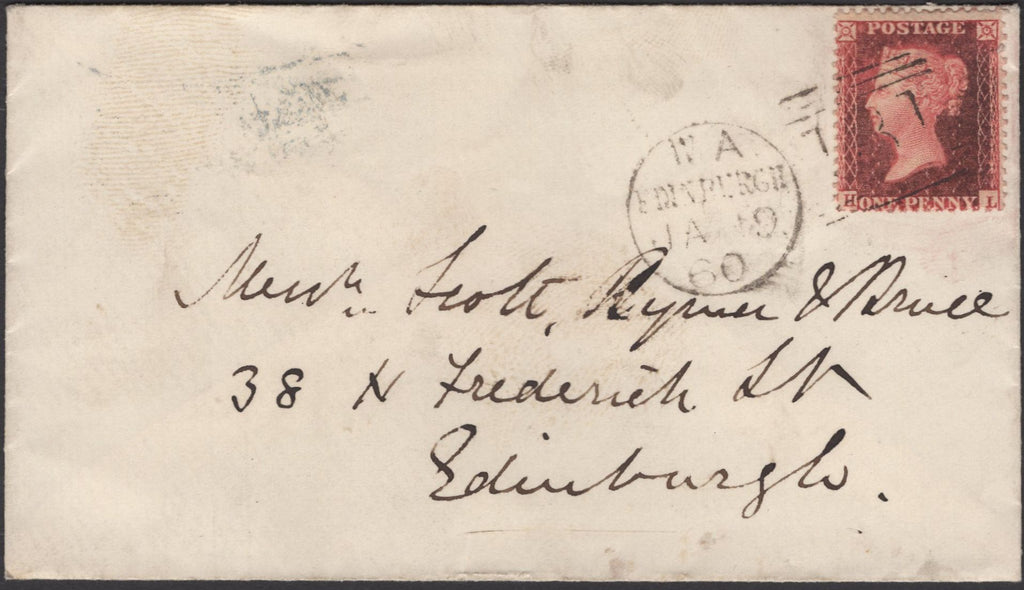 POSTAGE
H ONE PENNY L
131
17 A
EDINBURGH
JA 19
60
Messrs Scott, Rymer & Bruce
38 N Frederick St
Edinburgh.